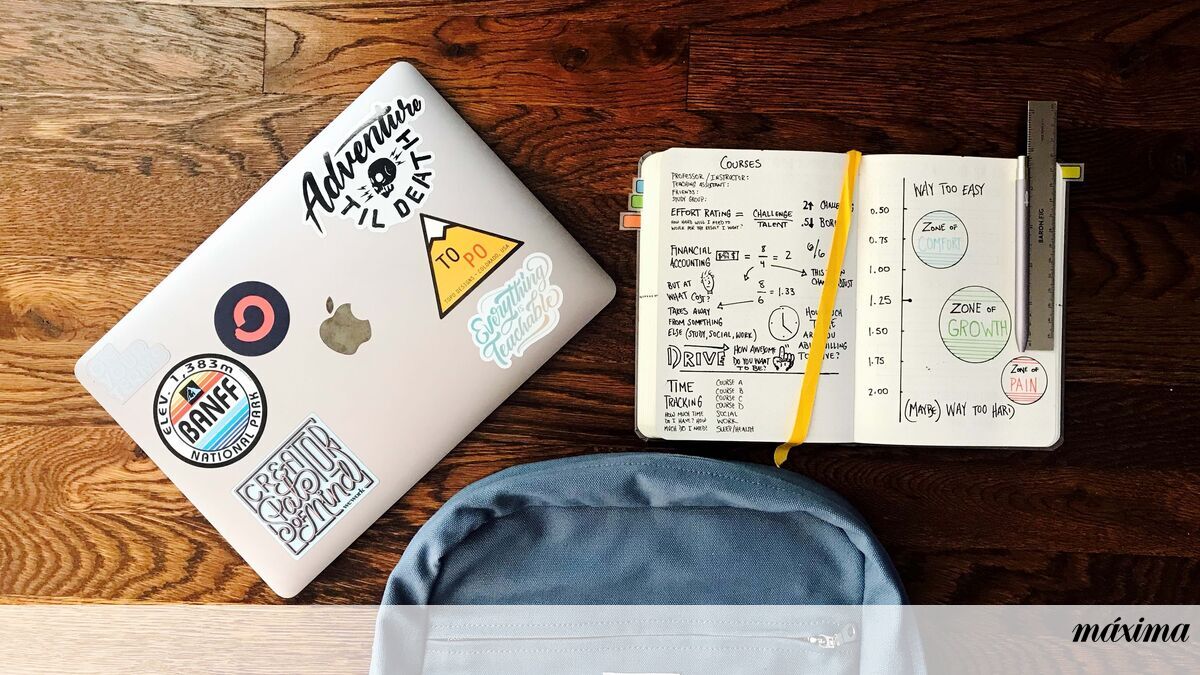 Adventure
TIL
DEATH
TO PO
TOPO DESIGNS - COLORADO, USA
Everything
is
Teachable
ELEV. 1,383m
BANFF
NATIONAL PARK
CREATOR
State
OF Mind
wework
COURSES
PROFESSOR / INSTRUCTOR:
TEACHING ASSISTANT:
FRIENDS:
STUDY GROUP:
EFFORT RATING = CHALLENGE
TALENT
HOW HARD WILL I NEED TO
WORK FOR THE RESULT I WANT?
2↑
.5↓
FINANCIAL
ACCOUNTING
8
4
= 2
6/6
BUT AT
WHAT COST?
8
6
= 1.33
TAKES AWAY
FROM SOMETHING
ELSE (STUDY, SOCIAL, WORK)
DRIVE
HOW AWESOME
DO YOU WANT
TO BE?
TIME
TRACKING
HOW MUCH TIME
DO I HAVE? HOW
MUCH DO I NEED?
COURSE A
COURSE B
COURSE C
COURSE D
SOCIAL
WORK
SLEEP/HEALTH
WAY TOO EASY
0.50
0.75
1.00
1.25
1.50
1.75
2.00
ZONE OF
COMFORT
ZONE OF
GROWTH
ZONE OF
PAIN
(MAYBE) WAY TOO HARD
BARON FIG
máxima